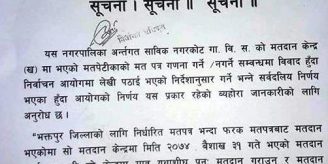 सूचना । सूचना ॥ सूचना ॥
यस नगरपालिका अन्तर्गत साविक नगरकोट गा. बि. स. को मतदान केन्द्र
(ख) मा भएको मतपेटीकाको मत पत्र गणना गर्ने /नगर्ने सम्बन्धमा विवाद हुँदा
निर्वाचन आयोगमा लेखी पठाई भएको निर्देशानुसार गर्ने भन्ने सर्वदलिय निर्णय
भएका हुँदा आयोगको निर्णय यस प्रकार रहेको ब्यहोरा जानकारीको लागि
अनुरोध छ ।
"भक्तपुर जिल्लाको लागि निर्धारित मतपत्र भन्दा फरक मतपत्रबाट मतदान
भएकोमा सो मतदान केन्द्रमा मिति २०७४ बैशाख ३१ गते भएको मतदान